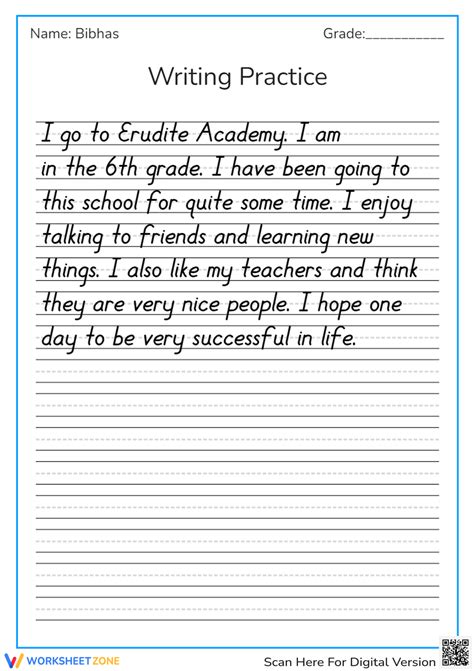 Name: Bibhas Grade:___________
Writing Practice
I go to Erudite Academy. I am
in the 6th grade. I have been going to
this school for quite some time. I enjoy
talking to friends and learning new
things. I also like my teachers and think
they are very nice people. I hope one
day to be very successful in life.
WORKSHEETZONE Scan Here For Digital Version